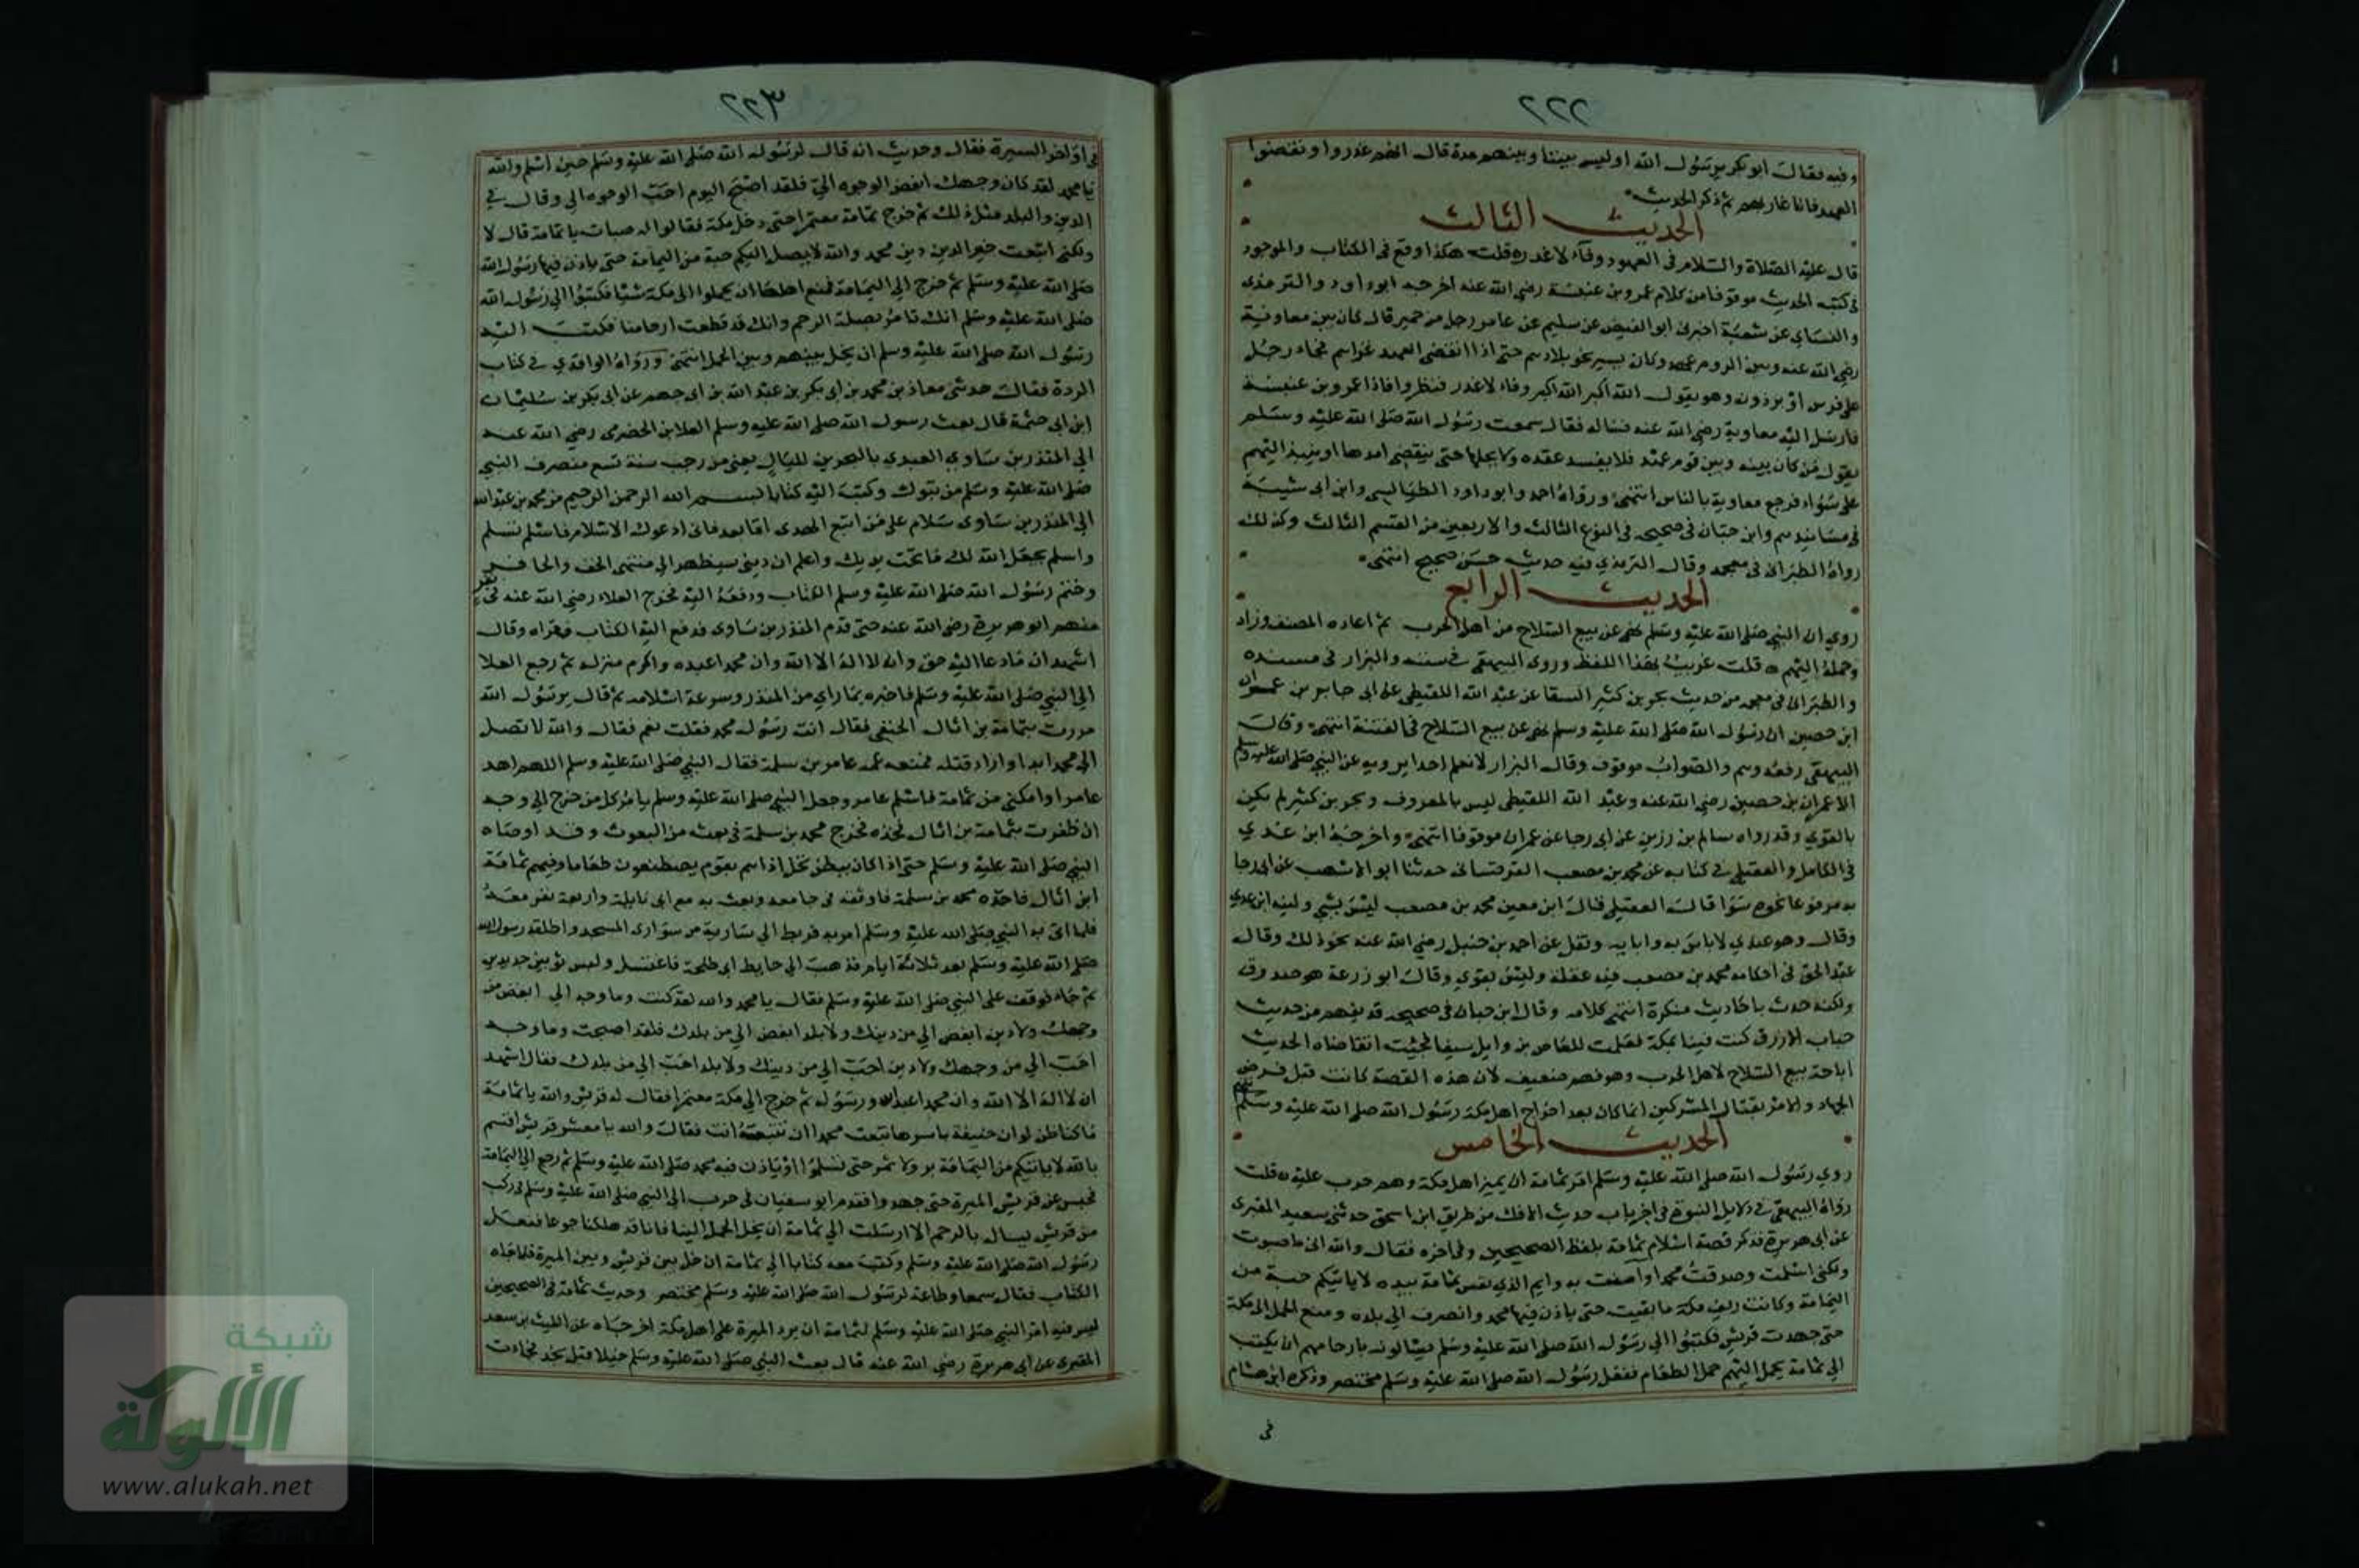 ٢٢٢
وفيه فقال ابو بكر يرسول الله اوليس بيننا وبينهم مدة قال انهم غدروا ونقضوا
العهد فانا غازيهم ثم ذكر الحديث
الحديث الثالث
قال عليه الصلاة والسلام في العهود وفآء لا غدره قلت هكذا وقع في الكتاب والموجود
في كتب الحديث موقوفا من كلام عمرو بن عنبسة رضي الله عنه اخرجه ابو داود والترمذي
والنساي عن شعبة اخبرني ابو الفيض عن سليم عن عامر رجل من حمير قال كان بين معاوية
رضي الله عنه وبين الروم عهد وكان يسير نحو بلادهم حتى اذا انقضى العهد غزاهم فجاء رجل
على فرس او برذون وهو يقول الله أكبر الله اكبر وفاء لا غدر فنظروا فاذا عمرو بن عنبسة
فارسل اليه معاوية رضي الله عنه فساله فقال سمعت رسول الله صلى الله عليه وسلم
يقول من كان بينه وبين قوم عهد فلا يفسد عقده ولا يحلها حتى ينقضي امدها او ينبذ اليهم
على سواء فرجع معاوية بالناس انتهى ورواه احمد وابو داود الطيالسي وابن ابي شيبة
في مسانيدهم وابن حبان في صحيحه في النوع الثالث والاربعين من القسم الثالث وكذلك
رواه الطبراني في معجمه وقال الترمذي فيه حديث حسن صحيح انتهى
الحديث الرابع
روي ان النبي صلى الله عليه وسلم نهى عن بيع السلاح من اهل الحرب ثم اعاده المصنف وزاد
وحمله اليهم ه قلت غريب بهذا اللفظ وروى البيهقي في سننه والبزار في مسنده
والطبراني في معجمه من حديث بحر بن كثير السقا عن عبد الله اللقيطي عن ابي جابر بن عمران
ابن حصين ان رسول الله صلى الله عليه وسلم نهى عن بيع السلاح في الفتنة انتهى وقال
البيهقي رفعه وهم والصواب موقوف وقال البزار لا نعلم احدا يرويه عن النبي صلى الله عليه وسلم
الا عمران بن حصين رضي الله عنه وعبد الله اللقيطي ليس بالمعروف وبحر بن كثير لم يكن
بالقوي وقد رواه سالم بن رزين عن ابي رجا عن عمران موقوفا انتهى واخرجه ابن عدي
في الكامل والعقيلي في كتابه عن محمد بن مصعب القرقساني حدثنا ابو الاشهب عن ابي رجا
به مرفوعا نحوه سوا قال العقيلي قال ابن معين محمد بن مصعب ليس بشي ولينه ابن عدي
وقال وهو عندي لا باس به وابايه ونقل عن احمد بن حنبل رضي الله عنه نحو ذلك وقال
عبد الحق في احكامه محمد بن مصعب فيه غفلة وليس بقوي وقال ابو زرعة هو صدوق
ولكنه حدث باحاديث منكرة انتهى كلامه وقال ابن حبان في صحيحه قد يفهم من حديث
حباب الازرق كنت قينا بمكة فعملت للعاص بن وايل سيفا فجيت اتقاضاه الحديث
اباحة بيع السلاح لاهل الحرب وهو فهم ضعيف لان هذه القصة كانت قبل فرض
الجهاد والامر بقتال المشركين انما كان بعد اخراج اهل مكة رسول الله صلى الله عليه وسلم
الحديث الخامس
روي رسول الله صلى الله عليه وسلم امر ثمامة ان يميز اهل مكة وهم حرب عليه ه قلت
رواه البيهقي في دلايل النبوة في اخر باب حديث الافك من طريق ابن اسحق حدثني سعيد المقبري
عن ابي هريرة فذكر قصة اسلام ثمامة بلفظ الصحيحين وفي اخره فقال والله اني ما صبوت
ولكني اسلمت وصدقت محمدا وآمنت به وايم الذي نفس ثمامة بيده لا ياتيكم حبة من
اليمامة وكانت ريف مكة ما بقيت حتى ياذن فيها محمد وانصرف الى بلده ومنع الحمل الى مكة
حتى جهدت قريش فكتبوا الى رسول الله صلى الله عليه وسلم يسالونه بارحامهم ان يكتب
الى ثمامة يحمل اليهم حمل الطعام ففعل رسول الله صلى الله عليه وسلم مختصر وذكره ابن هشام
في
٢٢٣
في اواخر السيرة فقال وحديث انه قال لرسول الله صلى الله عليه وسلم حين اسلم والله
يا محمد لقد كان وجهك ابغض الوجوه الي فلقد اصبح اليوم احب الوجوه الي وقال في
الدين والبلد مثل ذلك ثم خرج ثمامة معتمرا حتى دخل مكة فقالوا له صبات يا ثمامة قال لا
ولكني اتبعت خير الدين دين محمد والله لا يصل اليكم حبة من اليمامة حتى ياذن فيها رسول الله
صلى الله عليه وسلم ثم خرج الى اليمامة فمنع اهلها ان يحملوا الى مكة شيا فكتبوا الى رسول الله
صلى الله عليه وسلم انك تامر بصلة الرحم وانك قد قطعت ارحامنا فكتب اليه
رسول الله صلى الله عليه وسلم ان يخل بينهم وبين الحمل انتهى ورواه الواقدي في كتاب
الردة فقال حدثني معاذ بن محمد بن ابي بكر بن عبد الله بن ابي جهم عن ابي بكر بن سليمان
ابن ابي حثمة قال بعث رسول الله صلى الله عليه وسلم العلا بن الحضرمي رضي الله عنه
الى المنذر بن ساوي العبدي بالبحرين لليال بقين من رجب سنة تسع منصرف النبي
صلى الله عليه وسلم من تبوك وكتب اليه كتابا بسم الله الرحمن الرحيم من محمد بن عبد الله
الى المنذر بن ساوي سلام على من اتبع الهدى اما بعد فاني ادعوك الاسلام فاسلم تسلم
واسلم يجعل الله لك ما تحت يديك واعلم ان ديني سيظهر الى منتهى الخف والحافر
وختم رسول الله صلى الله عليه وسلم الكتاب ودفعه اليه فخرج العلاء رضي الله عنه في نفر
منهم ابو هريرة رضي الله عنه حتى قدم المنذر بن ساوى فدفع اليه الكتاب فقراه وقال
اشهد ان ما دعا اليه حق وانه لا اله الا الله وان محمدا عبده واكرم منزله ثم رجع العلا
الى النبي صلى الله عليه وسلم فاخبره بما راي من المنذر وسرعة اسلامه ثم قال يرسول الله
مررت بثمامة بن اثال الحنفي فقال انت رسول محمد فقلت نعم فقال والله لا تصل
الى محمد ابدا واراد قتله فمنعه عمه عامر بن سلمة فقال النبي صلى الله عليه وسلم اللهم اهد
عامرا وامكني من ثمامة فاسلم عامر وجعل النبي صلى الله عليه وسلم يامر كل من خرج الى وجه
ان ظفرت بثمامة بن اثال فخذه فخرج محمد بن سلمة في بعث من البعوث وقد اوصاه
النبي صلى الله عليه وسلم حتى اذا كان ببطن نخل اذا هم بقوم يصطنعون طعاما وفيهم ثمامة
ابن اثال فاخذه محمد بن سلمة فاوثقه في جامعة وبعث به مع ابي نايلة واربعة نفر معه
فلما اتى به النبي صلى الله عليه وسلم امر به فربط الى سارية من سواري المسجد واطلقه رسول الله
صلى الله عليه وسلم بعد ثلاثة ايام فذهب الى حايط ابي طلحة فاغتسل ولبس ثوبين جديدين
ثم جاء فوقف على النبي صلى الله عليه وسلم فقال يا محمد والله لقد كنت وما وجه الي ابغض من
وجهك ولا دين ابغض الي من دينك ولا بلد ابغض الي من بلدك فلقد اصبحت وما وجه
احب الي من وجهك ولا دين احب الي من دينك ولا بلد احب الي من بلدك فقال اشهد
ان لا اله الا الله وان محمدا عبده ورسوله ثم خرج الى مكة معتمرا فقال له قريش والله يا ثمامة
ما كنا نظن لو ان حنيفة باسرها تبعت محمدا ان تتبعه انت فقال والله يا معشر قريش اقسم
بالله لا ياتيكم من اليمامة بر ولا تمر حتى تسلموا او ياذن فيه محمد صلى الله عليه وسلم ثم رجع الى اليمامة
فحبس عن قريش الميرة حتى جهدوا فقدم ابو سفيان بن حرب الى النبي صلى الله عليه وسلم في ركب
من قريش يسال بالرحم الا ارسلت الى ثمامة ان يخل الحمل الينا فانا قد هلكنا جوعا ففعل
رسول الله صلى الله عليه وسلم وكتب معه كتابا الى ثمامة ان خل بين قريش وبين الميرة فلما جاءه
الكتاب فقال سمعا وطاعة لرسول الله صلى الله عليه وسلم مختصر وحديث ثمامة في الصحيحين
ليس فيه امر النبي صلى الله عليه وسلم لثمامة ان يرد الميرة على اهل مكة اخرجاه عن الليث بن سعد
المقبري عن ابي هريرة رضي الله عنه قال بعث النبي صلى الله عليه وسلم خيلا قبل نجد فجاءت
شبكة
الألوكة
www.alukah.net